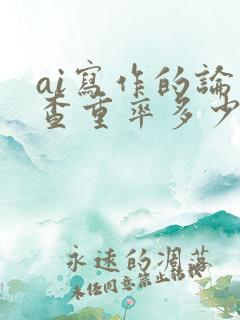 ai寫作的論
查重率多少
永遠的凋落
未經同意禁止轉載